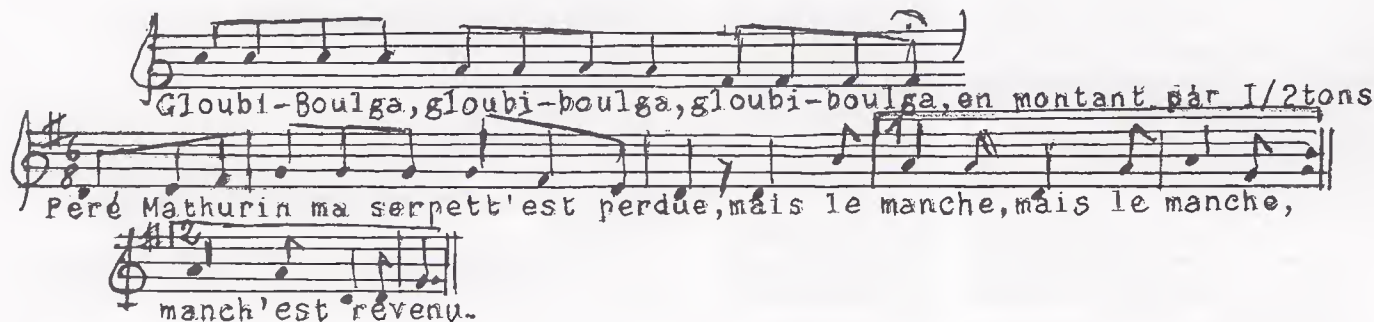 Gloubi-Boulga,gloubi-boulga,gloubi-boulga,en montant par I/2tons
6
8
1
Peré Mathurin ma serpett'est perdue,mais le manche,mais le manche,
2
manch'est revenu.